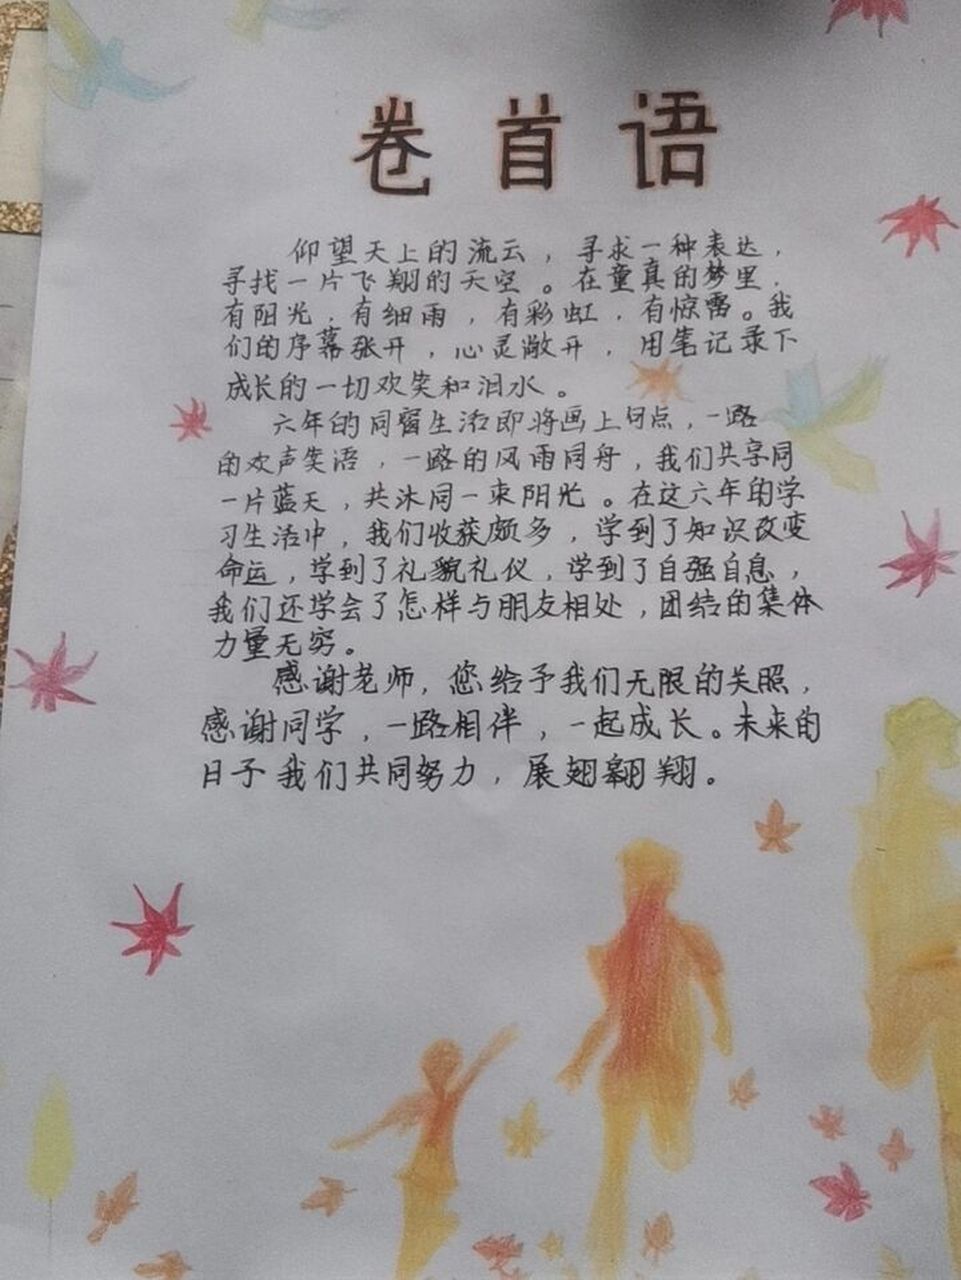 卷首语
仰望天上的流云，寻求一种表达，
寻找一片飞翔的天空。在童真的梦里，
有阳光，有细雨，有彩虹，有惊雷。我
们的序幕张开，心灵敞开，用笔记录下
成长的一切欢笑和泪水。
六年的同窗生活即将画上句点，一路
的欢声笑语，一路的风雨同舟，我们共享同
一片蓝天，共沐同一束阳光。在这六年的学
习生活中，我们收获颇多，学到了知识改变
命运，学到了礼貌礼仪，学到了自强自息，
我们还学会了怎样与朋友相处，团结的集体
力量无穷。
感谢老师，您给予我们无限的关照，
感谢同学，一路相伴，一起成长。未来的
日子我们共同努力，展翅翱翔。